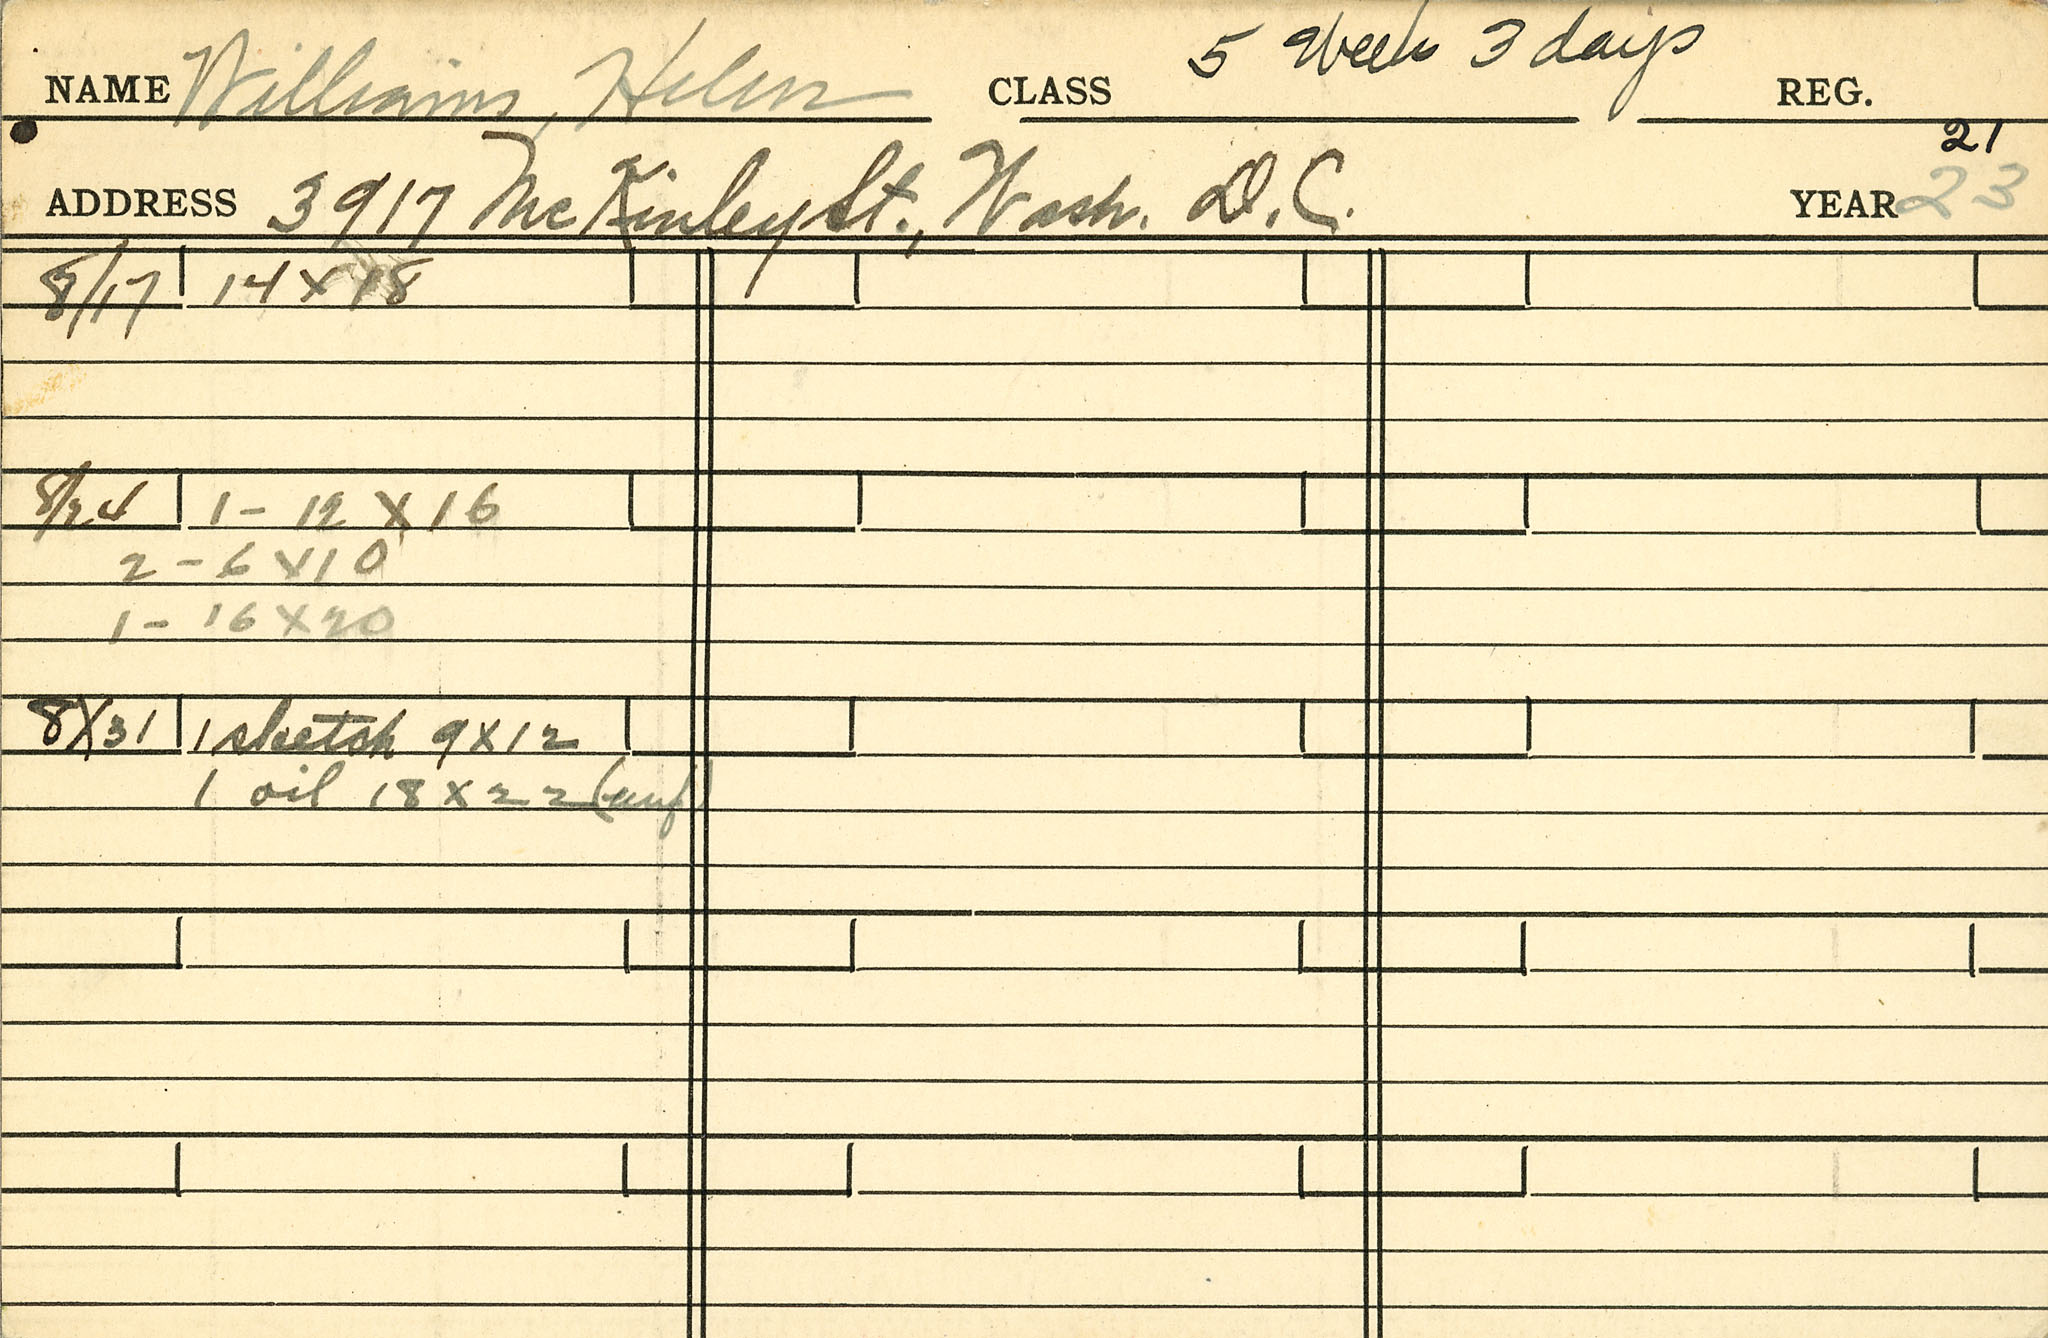 NAME Williams, Helen CLASS 5 Weeks 3 days REG.
21
ADDRESS 3917 McKinley St., Wash. D.C. YEAR 23
8/17 14 x 18
8/24 1 - 12 x 16
2 - 6 x 10
1 - 16 x 20
8/31 1 sketch 9 x 12
1 oil 18 x 22 (unf)